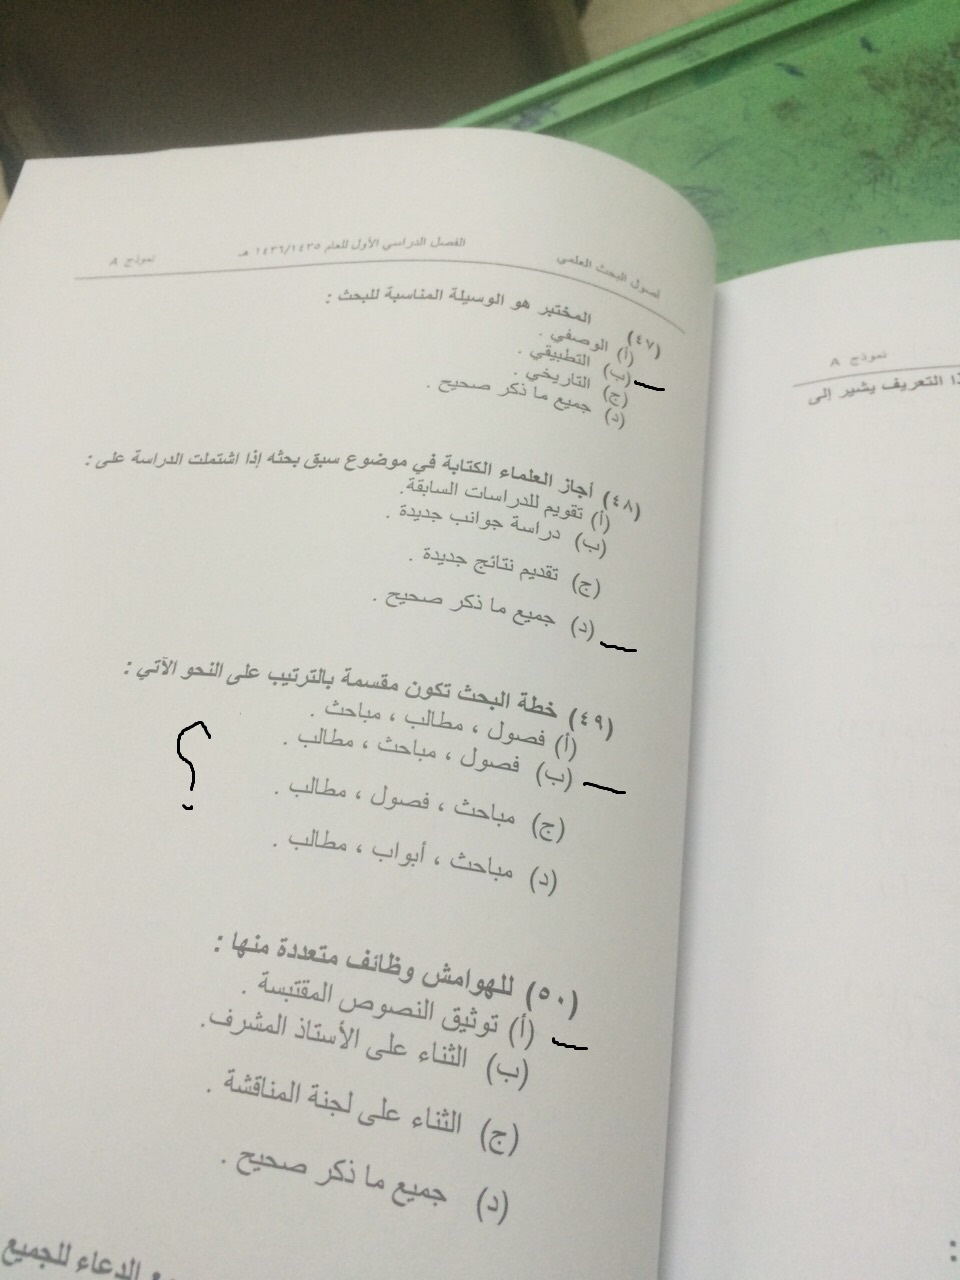 أصول البحث العلمي
الفصل الدراسي الأول للعام ١٤٣٦/١٤٣٥ هـ
نموذج A
(٤٧) المختبر هو الوسيلة المناسبة للبحث :
(أ) الوصفي .
(ب) التطبيقي .
(ج) التاريخي .
(د) جميع ما ذكر صحيح .
(٤٨) أجاز العلماء الكتابة في موضوع سبق بحثه إذا اشتملت الدراسة على :
(أ) تقويم للدراسات السابقة.
(ب) دراسة جوانب جديدة .
(ج) تقديم نتائج جديدة .
(د) جميع ما ذكر صحيح .
(٤٩) خطة البحث تكون مقسمة بالترتيب على النحو الآتي :
(أ) فصول ، مطالب ، مباحث .
(ب) فصول ، مباحث ، مطالب .
(ج) مباحث ، فصول ، مطالب .
(د) مباحث ، أبواب ، مطالب .
؟
(٥٠) للهوامش وظائف متعددة منها :
(أ) توثيق النصوص المقتبسة .
(ب) الثناء على الأستاذ المشرف.
(ج) الثناء على لجنة المناقشة .
(د) جميع ما ذكر صحيح .
الدعاء للجميع
نموذج A
التعريف يشير إلى
: